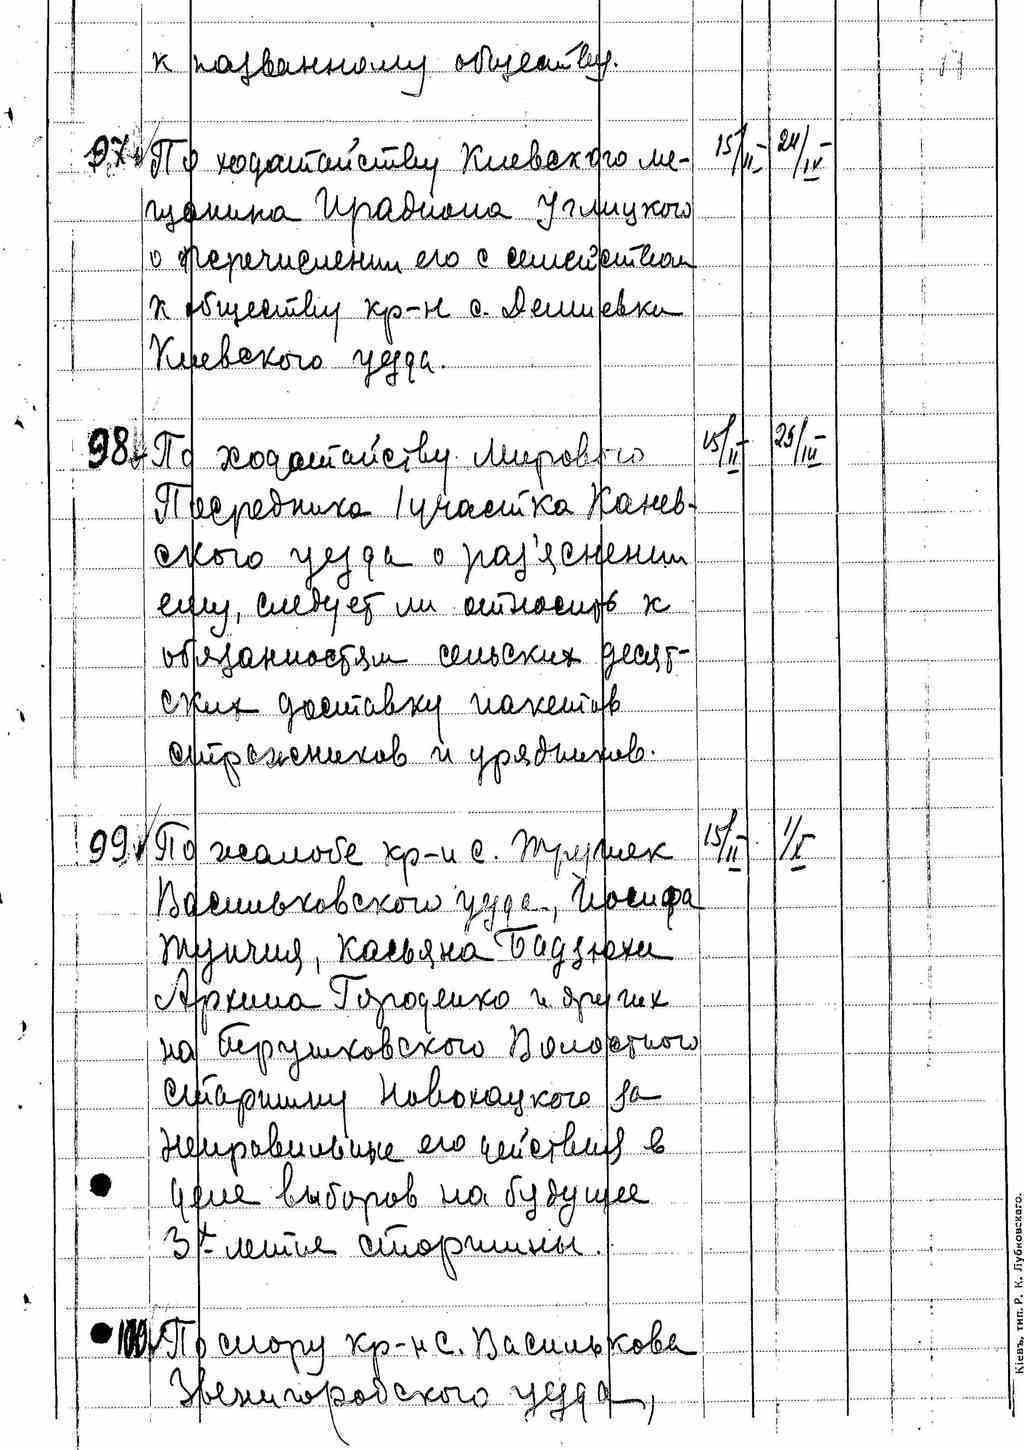 к названному обществу.
17
97 По ходатайству Киевского ме- 15/II 24/IV
щанина Ирадиона Углицкого
о перечислении его с семейством
к обществу кр-н с. Демиевки
Киевского уезда.
98 По ходатайству Мирового 15/II 25/III
Посредника 1 участка Канев-
ского уезда о раз'яснении
ему, следует ли относить к
обязанностям сельских десят-
ских доставку пакетов
стражников и урядников.
99 По жалобе кр-н с. Трушек 15/II 1/X
Васильковского уезда, Иосифа
Касьяна Бадзюхи
Архипа Городенко и других
на Волостного
старшину Новохацкого за
неправильные его действия в
деле выборов на будущее
3х летие старшины.
100 По спору кр-н с. Василькова
Звенигородского уезда,
Кіевъ, тип. Р. К. Лубковскаго.